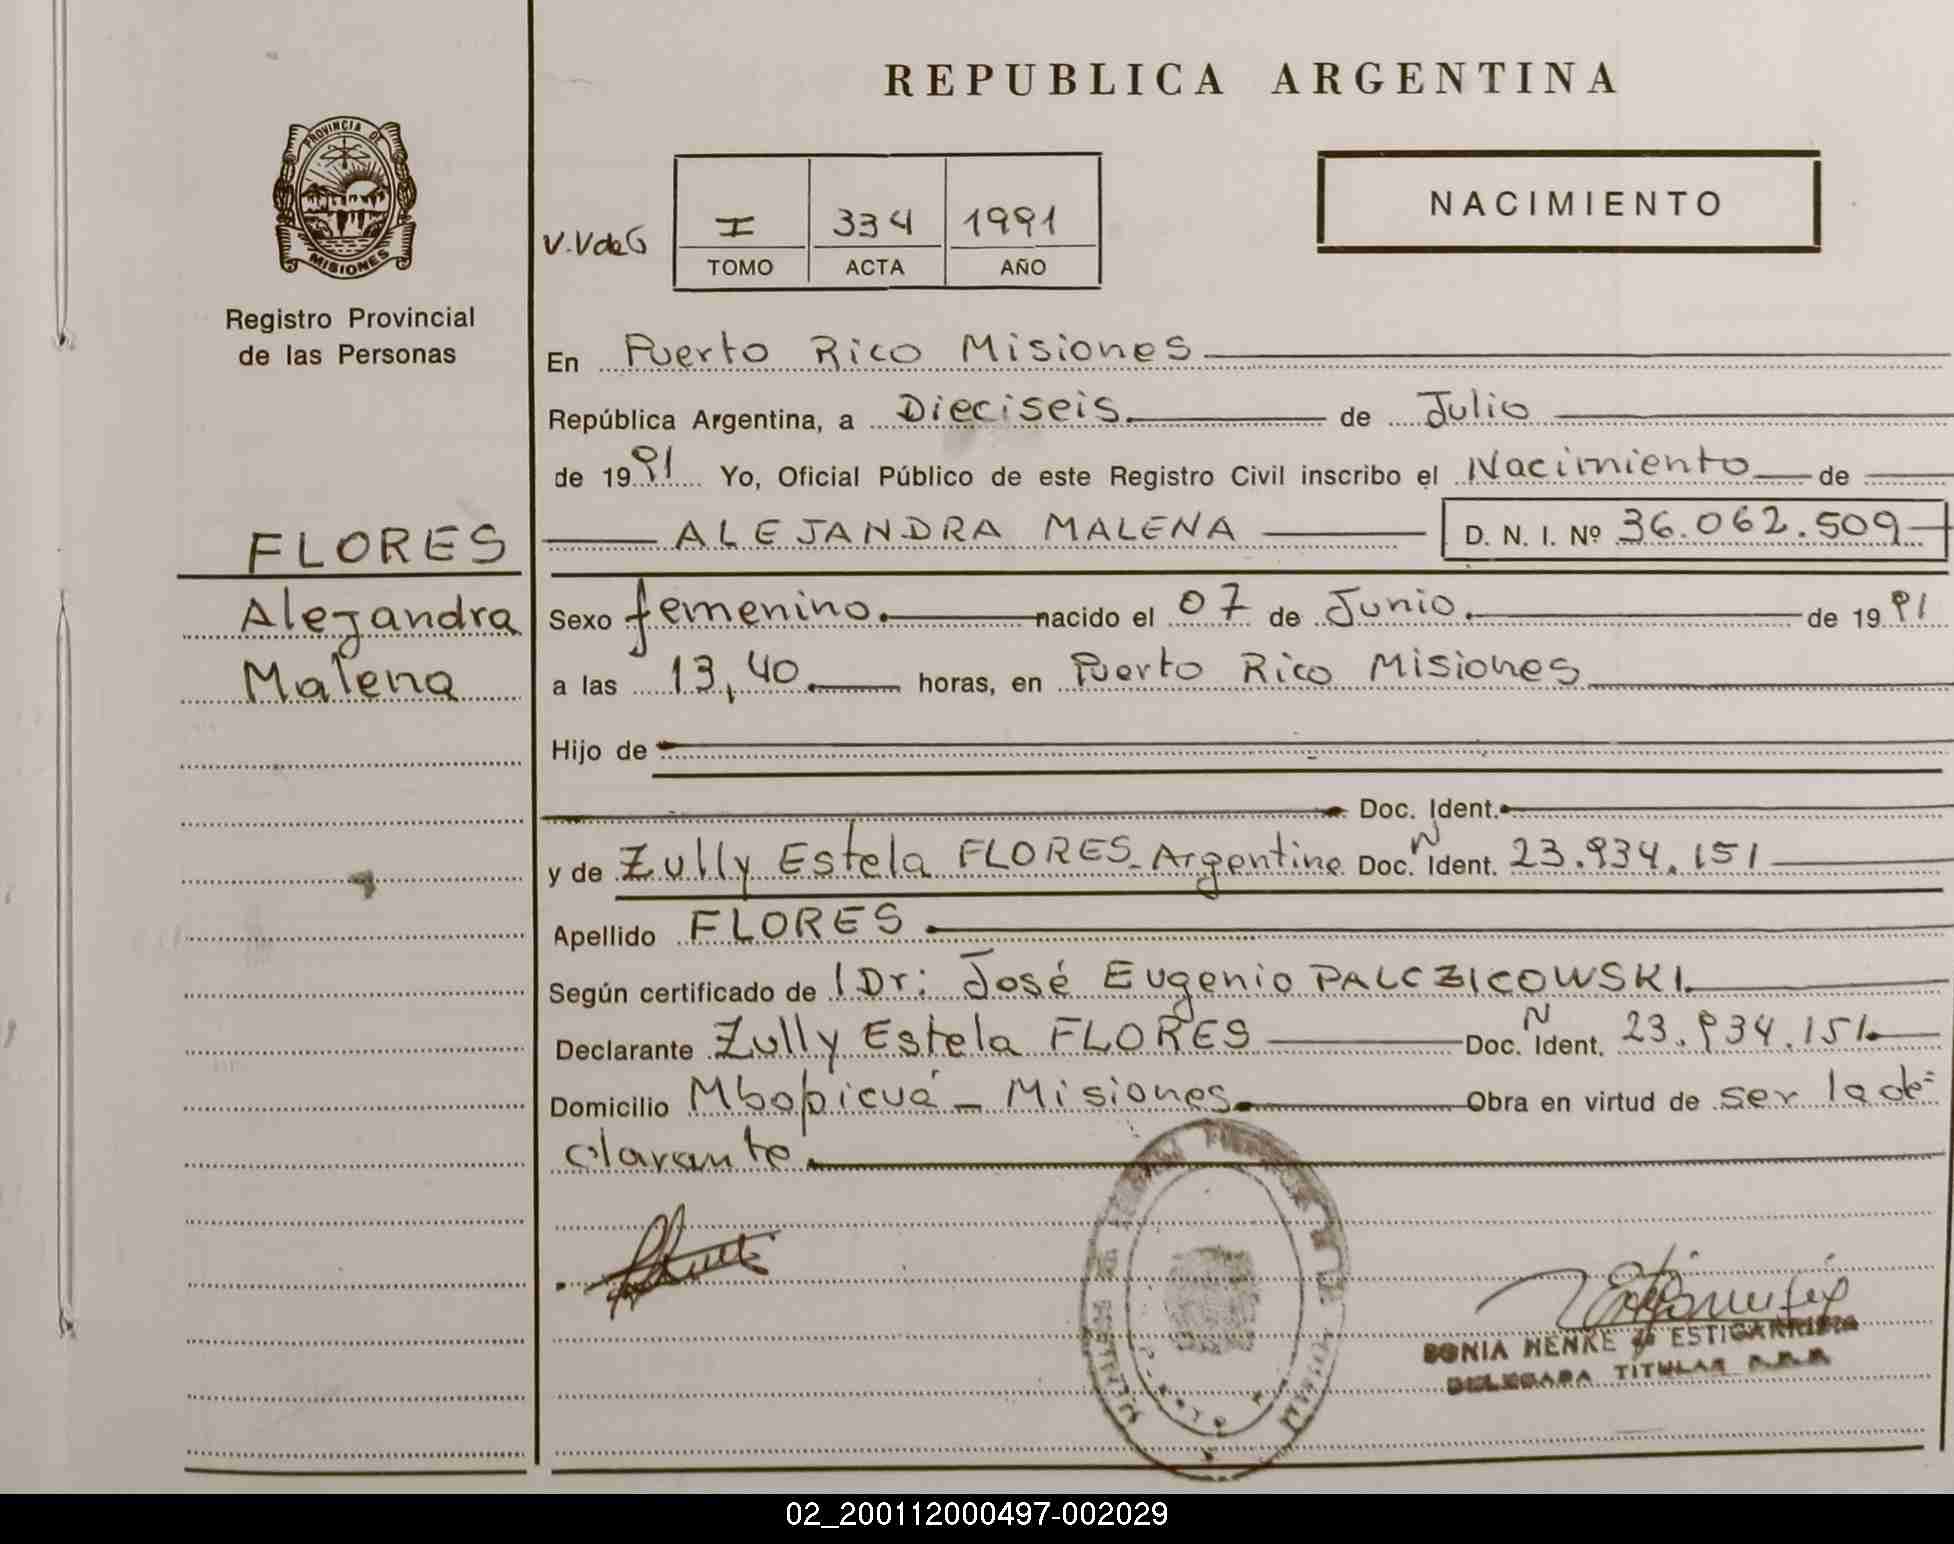 REPUBLICA ARGENTINA
PROVINCIA DE
MISIONES
Registro Provincial
de las Personas
NACIMIENTO
V.VdeG
I 334 1991
TOMO ACTA AÑO
En Puerto Rico Misiones
República Argentina, a Dieciseis de Julio
de 1991 Yo, Oficial Público de este Registro Civil inscribo el Nacimiento de
FLORES
ALEJANDRA MALENA D. N. I. Nº 36.062.509
Alejandra
Malena
Sexo femenino. nacido el 07 de Junio. de 1991
a las 13,40 horas, en Puerto Rico Misiones
Hijo de
Doc. Ident.
y de Zully Estela FLORES- Argentina Doc. N Ident. 23.934.151
Apellido FLORES
Según certificado de Dr: José Eugenio PALCZICOWSKI.
Declarante Zully Estela FLORES Doc. N Ident. 23.934.151
Domicilio Mbopicuá - Misiones. Obra en virtud de ser la de=
clarante
SONIA HENKE de ESTIGARRIBIA
DELEGADA TITULAR
02_200112000497-002029